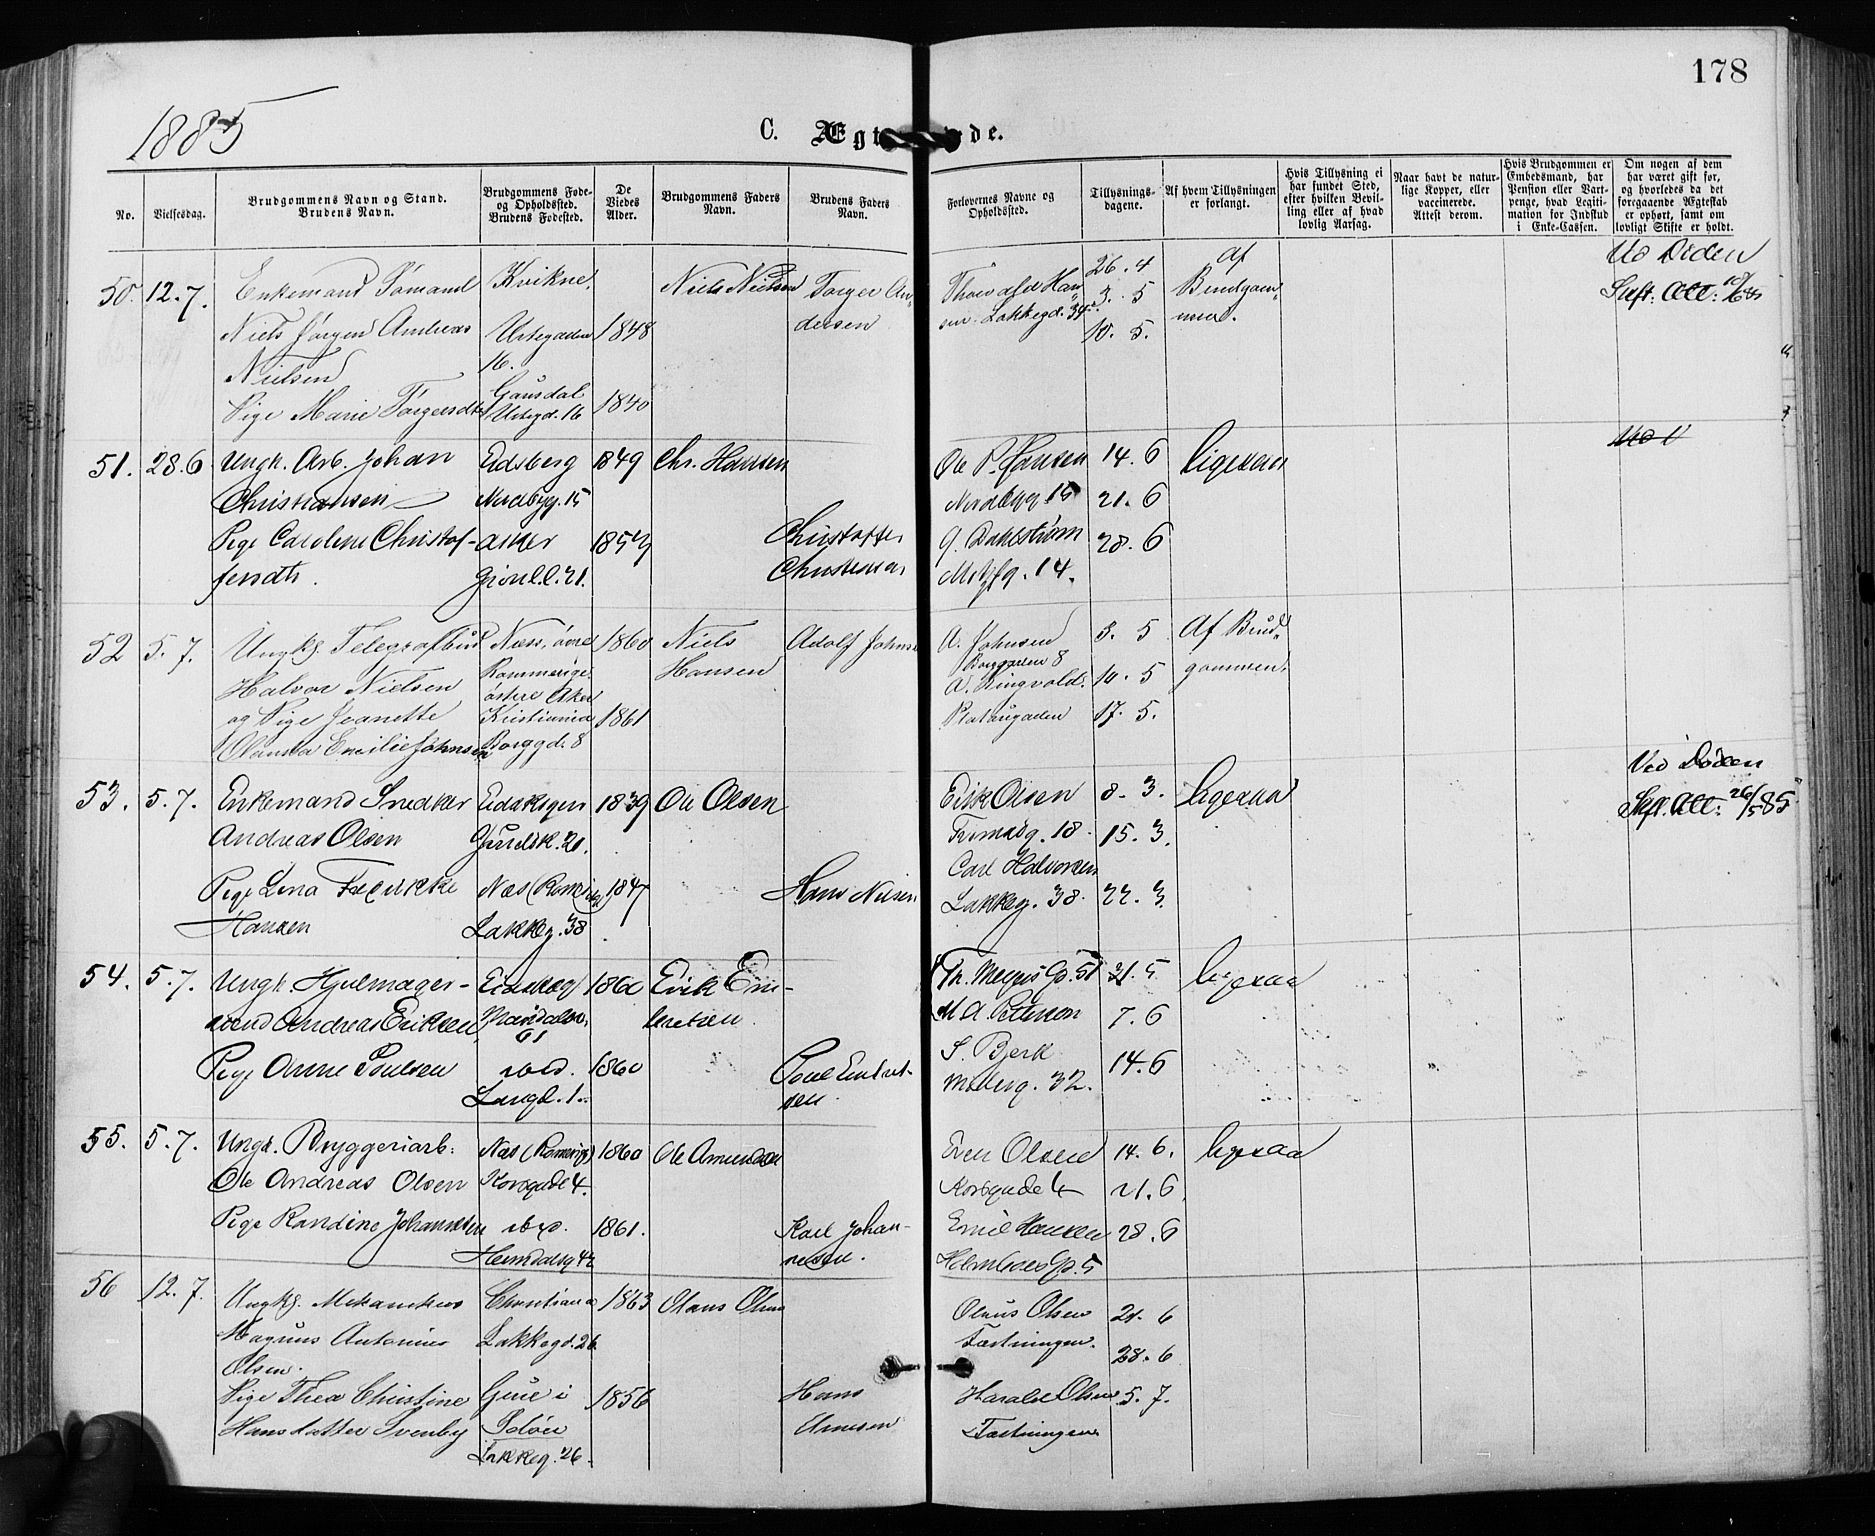 178
1885
C. Ægt de.
No.
Vielsesdag.
Brudgommens Navn og Stand.
Brudens Navn.
Brudgommens Føde-
og Opholdssted.
Brudens Fødested.
De
Viedes
Alder.
Brudgommens Faders
Navn.
Brudens Faders
Navn.
Forlovernes Navne og
Opholdssted.
Tillysnings-
dagene.
Af hvem Tillysningen
er forlangt.
Hvis Tillysning ei
har fundet Sted,
efter hvilken Bevil-
ling eller af hvad
lovlig Aarsag.
Naar havt de natur-
lige Kopper, eller
vaccinerede.
Attest derom.
Hvis Brudgommen er
Embedsmand, har
Pension eller Vart-
penge, hvad Legiti-
mation for Indskud
i Enke-Cassen.
Om nogen af dem
har været gift før,
og hvorledes da det
foregaaende Ægteskab
er ophørt, samt om
lovligt Skifte er holdt.
50. 12.7. Enkemand Sømand Kvikne. Niels Nielsen Torger An- Thorvald Han- 26.4 af Ved Døden
Niels Jørgen Andreas Urtegaden 1848 dersen sen. Lakkegd. 39 3. 5 Brudgom- Skft. Att:
Nielsen 16. 10. 5. men.
Pige Marie Torgersdtr Gausdal Urtegd. 16 1840
51. 28.6 Ungk. Arb. Johan Eidsberg 1849 Chr. Hansen Ole P. Hansen 14.6 ligesaa
Christiansen Nordbyg. 15 Nordbyg. 15 21.6
Pige Caroline Christof- Asker Christoffer G. Dahlstrøm 28.6
fersdtr. Grønl.l. 21. Christensen Motzfg. 14.
52 5.7. Ungkg. Telegrafbud Næss, øvre 1860 Niels Adolf Johnsen A. Johnsen 3. 5 Af Brud-
Halvor Nielsen Rommerige. Hansen Borggaden 8 gommen.
og Pige Jeanette østre Aker A. Ringvold. 10. 5
Kristiania 1861 Platougaden 17. 5.
Emilie Johnsen Borggd. 8
53. 5.7. Enkemand Snedker Eidskogen 1839 Ole Olsen Erik Olsen 8. 3. ligesaa Ved Døden
Andreas Olsen 18 15. 3. Skft. Att: 26/5 85
Pige Lina Fredrikke Næs (Romerige) 1847 Hans Nilsen Carl Halvorsen
Hansen Lakkeg. 38 Lakkeg. 38 22. 3.
54. 5.7. Ungk. Hjulmager- Eidskog 1860 Erik Em- Th. Meyers G. 51 21. 5 ligesaa
svend Andreas Eriksen 61 bretsen M. A. Petterson 7. 6
Pige Anne Poulsen ibid. 1860 Poul Embret- S. Bjerk 14.6
Langd. 1. sen Mølleg. 32.
55. 5.7. Ungk. Bryggeriarb: Næs (Romerige) 1860 Ole Amundsen Even Olsen 14. 6. ligesaa
Ole Andreas Olsen Korsgade 4. Korsgade 4 21. 6.
Pige Randine Johannesen ibid. 1861. Karl Johan- Emil Hansen 28. 6
Heimdalsg 42 nesen. Holmboes G. 5
56 12.7. Ungkg. Mekanikus Christiania 1863 Olaus Olsen Olaus Olsen 21. 6
Magnus Antonius Lakkegd. 26 Fæstningen.
Olsen. 28. 6
Pige Thea Christine 1856 Hans Harald Olsen 5. 7.
Hansdatter Svenby Arnesen Fæstningen
Lakkeg. 26